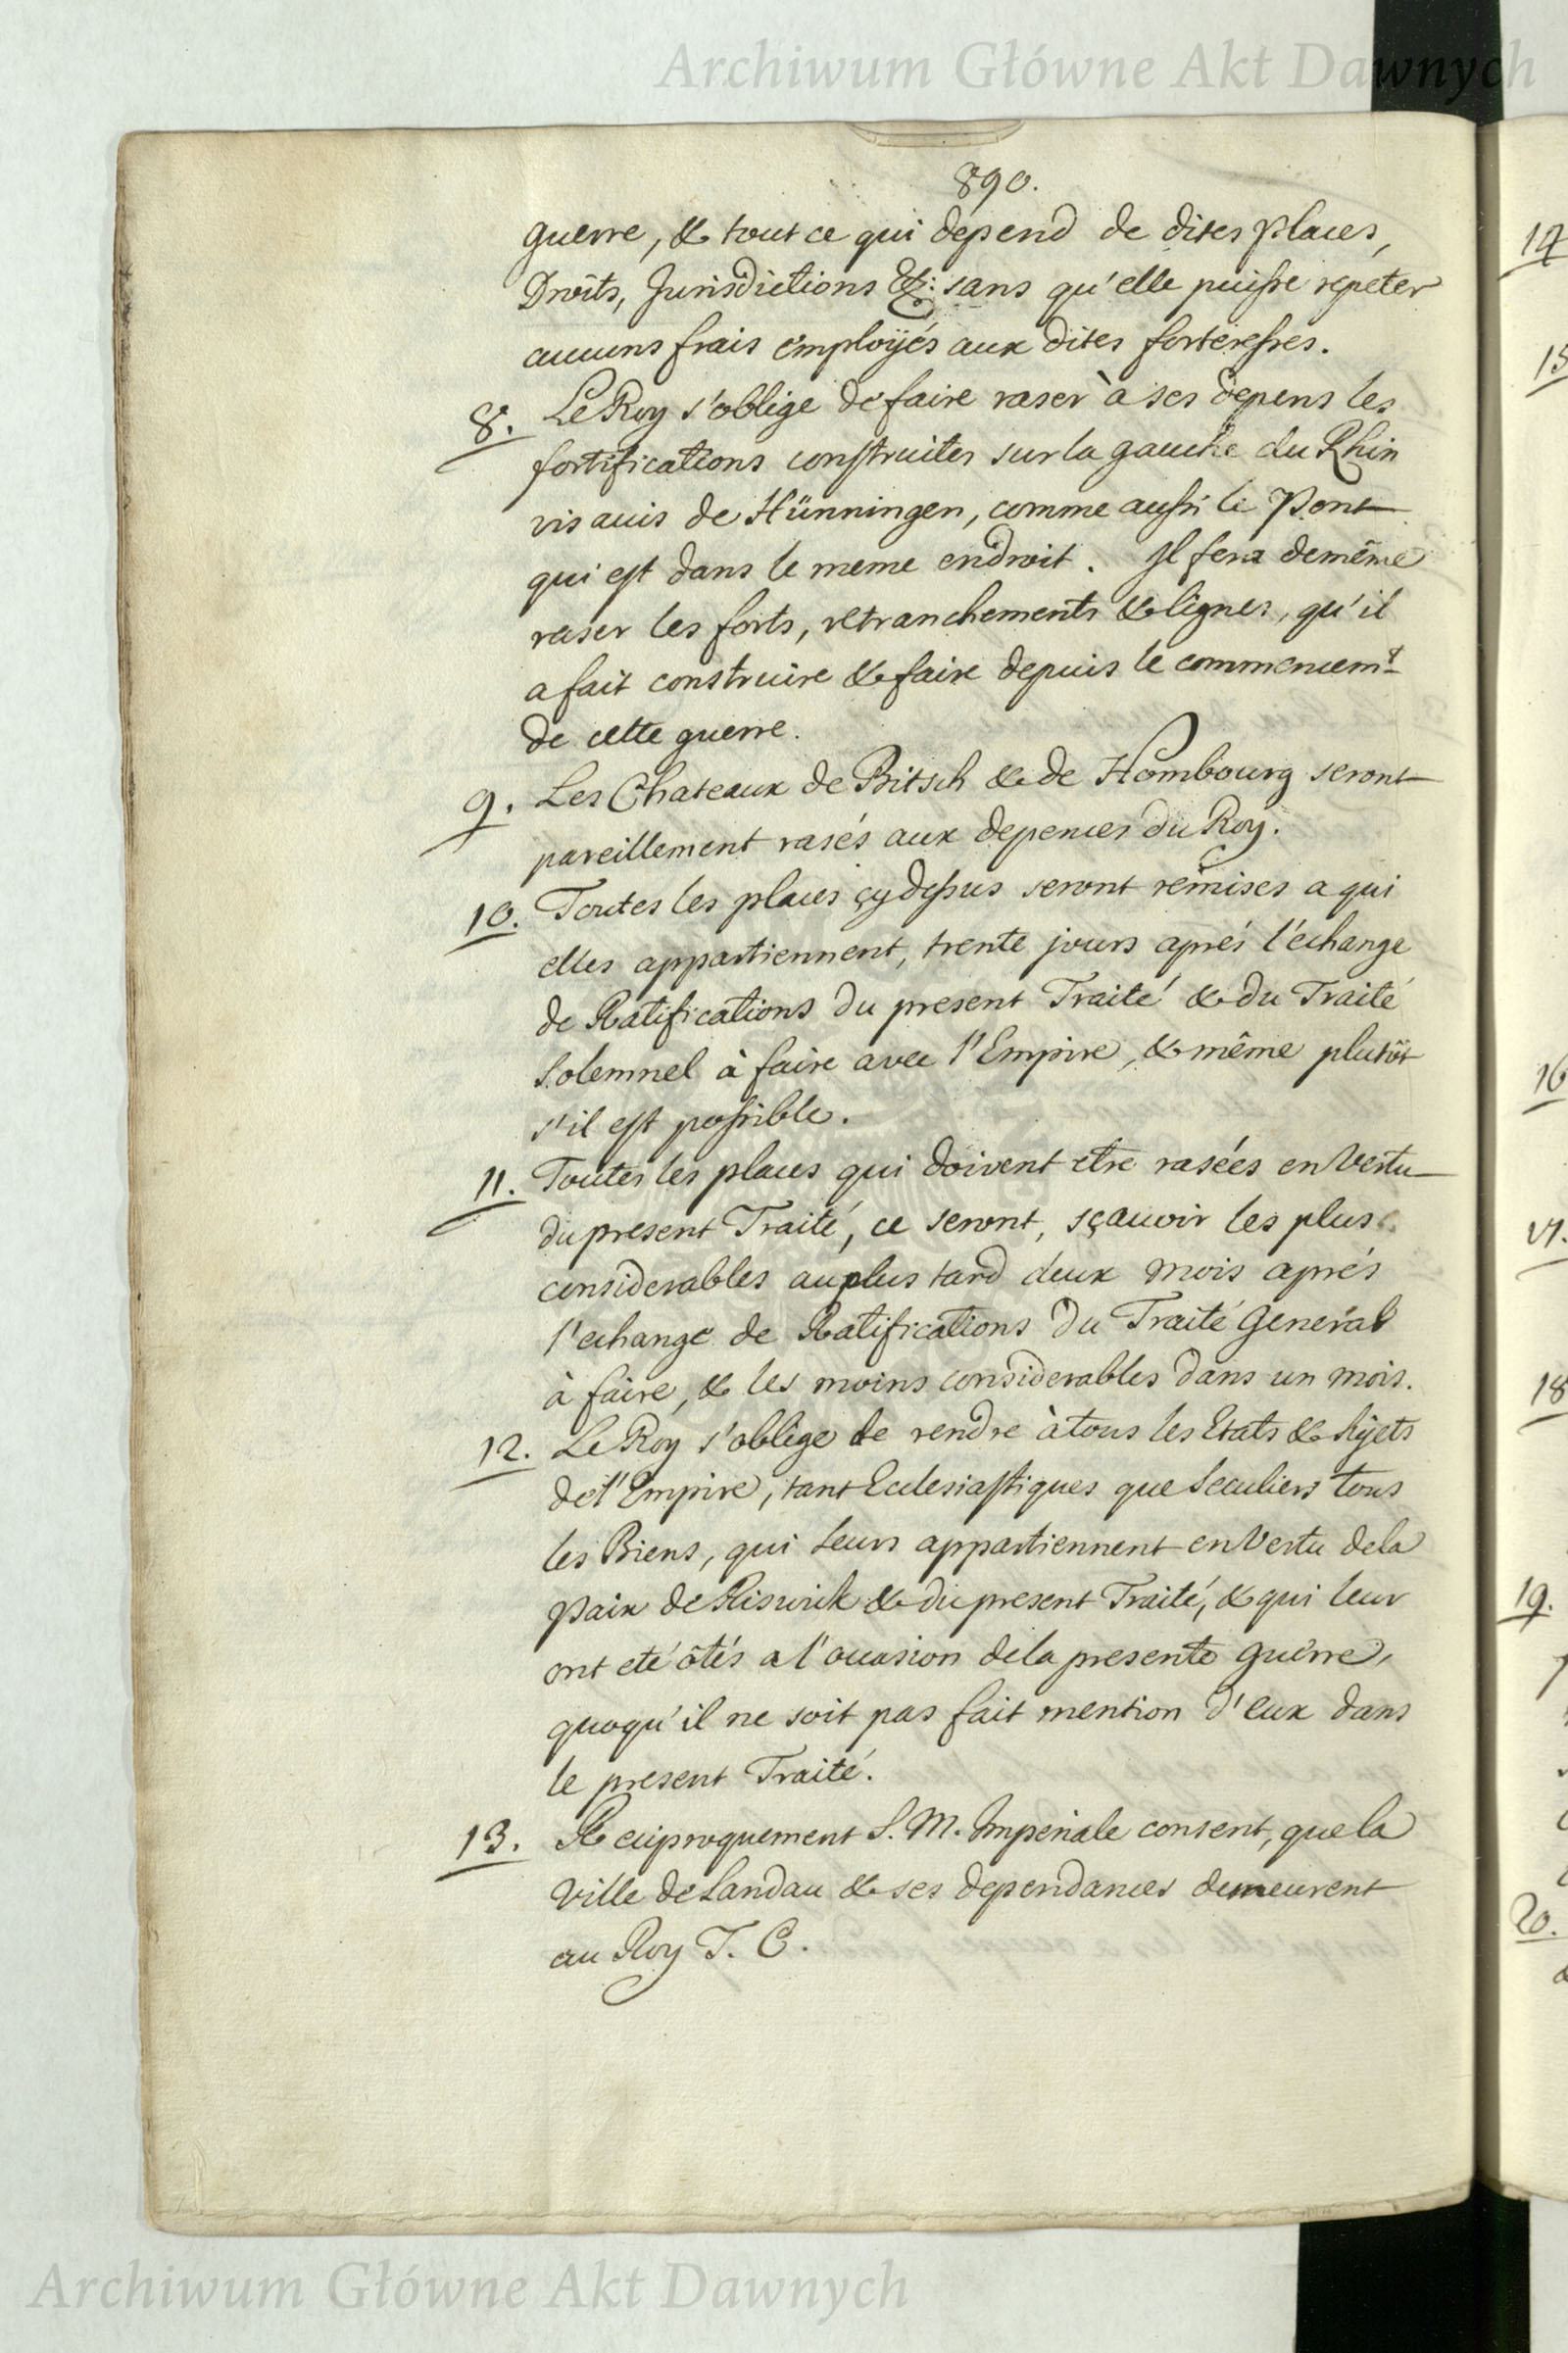 Archiwum Główne Akt Dawnych
890.
guerre, & tout ce qui depend de dites places,
Droits, Jurisdictions &c: sans qu'elle puisse repeter
aucuns frais employés aux dites forteresses.
8. Le Roy s'oblige de faire raser à ses depens les
fortifications construites sur la gauche du Rhin
vis avis de Hünningen, comme aussi le Pont
qui est dans le meme endroit. Il fera de même
raser les forts, retranchements & lignes, qu'il
a fait construire & faire depuis le commencemt
de cette guerre.
9. Les Chateaux de Bitsch & de Hombourg seront
pareillement rasés aux depences du Roy.
10. Toutes les places cy dessus seront remises a qui
elles appartiennent, trente jours aprés l'echange
de Ratifications du present Traité & du Traité
Solemnel à faire avec l'Empire, & même plutôt
s'il est possible.
11. Toutes les places qui doivent etre rasées en Vertu
du present Traité, ce seront, sçavoir les plus
considerables au plus tard deux mois aprés
l'echange de Ratifications du Traité General
à faire, & les moins considerables dans un mois.
12. Le Roy s'oblige de rendre à tous les Etats & Sujets
de l'Empire, tant Ecclesiastiques que Seculiers tous
les Biens, qui leurs appartiennent en Vertu de la
Paix de Riswick & du present Traité, & qui leur
ont eté ôtés a l'occasion de la presente guerre,
quoqu'il ne soit pas fait mention d'eux dans
le present Traité.
13. Reciproquement S. M. Imperiale consent, que la
Ville de Landau & ses dependances demeurent
au Roy T. C.
14
15
16
17.
18
19.
20.
Archiwum Główne Akt Dawnych